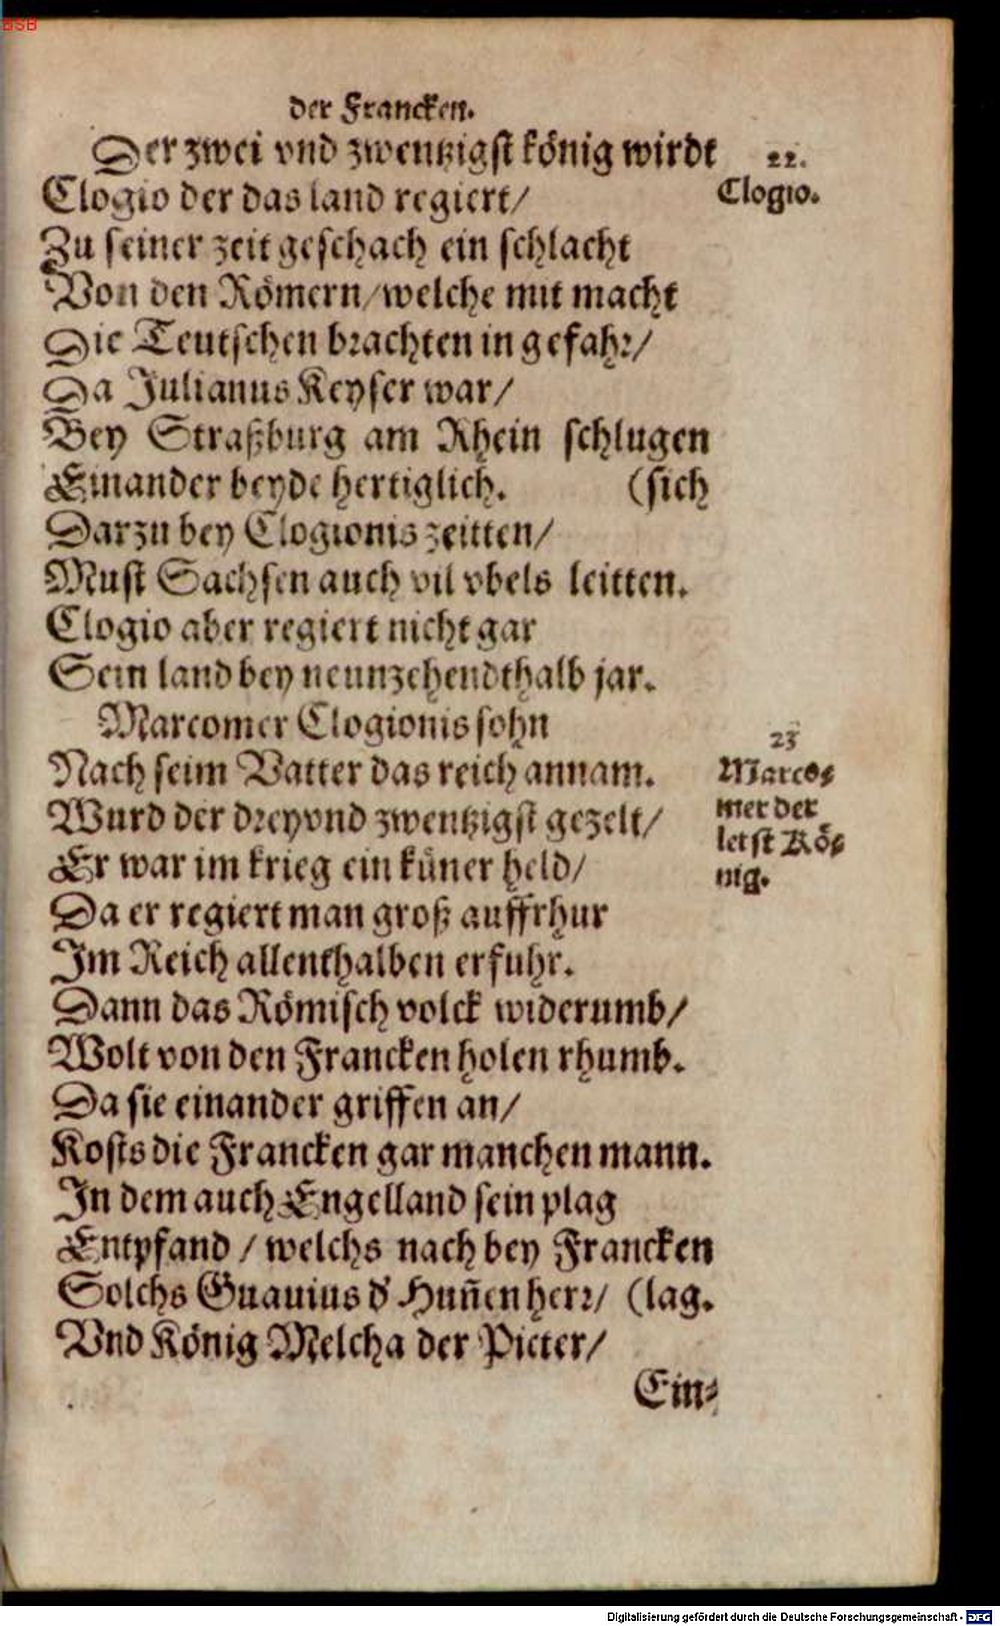 BSB
der Francken.
Der zwei vnd zwentzigst könig wirdt
22.
Clogio der das land regiert/
Clogio.
Zu seiner zeit geschach ein schlacht
Von den Römern/welche mit macht
Die Teutschen brachten in gefahr/
Da Julianus Keyser war/
Bey Straßburg am Rhein schlugen
Einander beyde hertiglich. (sich
Darzu bey Clogionis zeitten/
Must Sachsen auch vil vbels leitten.
Clogio aber regiert nicht gar
Sein land bey neunzehendthalb jar.
Marcomer Clogionis sohn
23
Nach seim Vatter das reich annam.
Marco⸗
Wurd der dreyvnd zwentzigst gezelt/
mer der
Er war im krieg ein küner held/
letst Kö⸗
nig.
Da er regiert man groß auffrhur
Im Reich allenthalben erfuhr.
Dann das Römisch volck widerumb/
Wolt von den Francken holen rhumb.
Da sie einander griffen an/
Kosts die Francken gar manchen mann.
In dem auch Engelland sein plag
Entpfand / welchs nach bey Francken
Solchs Guauius d' Huñen herr/ (lag.
Vnd König Melcha der Picter/
Ein⸗
Digitalisierung gefördert durch die Deutsche Forschungsgemeinschaft - DFG